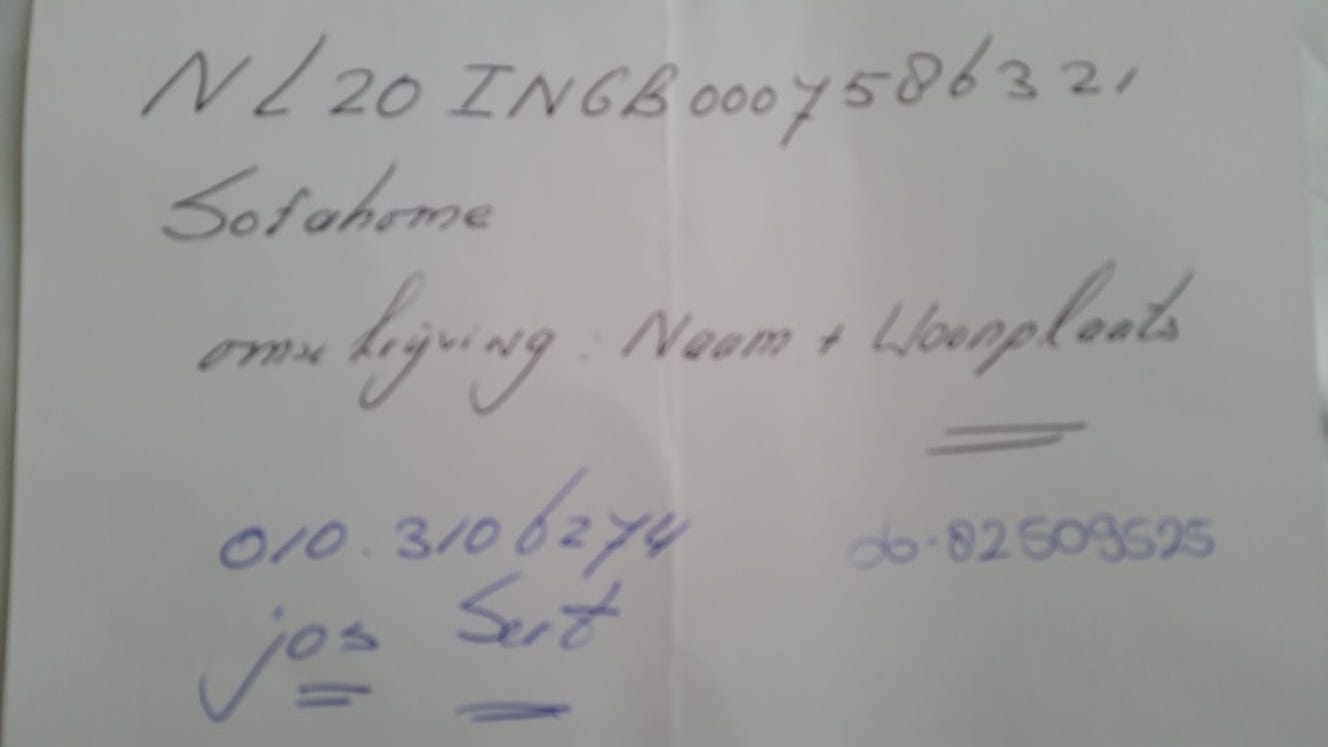 NL20 INGB 0007586321
Sofahome
omschrijving: Naam + Woonplaats
010.3106274 06.82509525
jos Sert